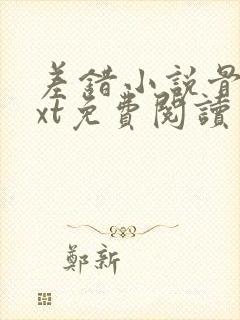 差錯小説骨
xt免費閱讀
鄭新